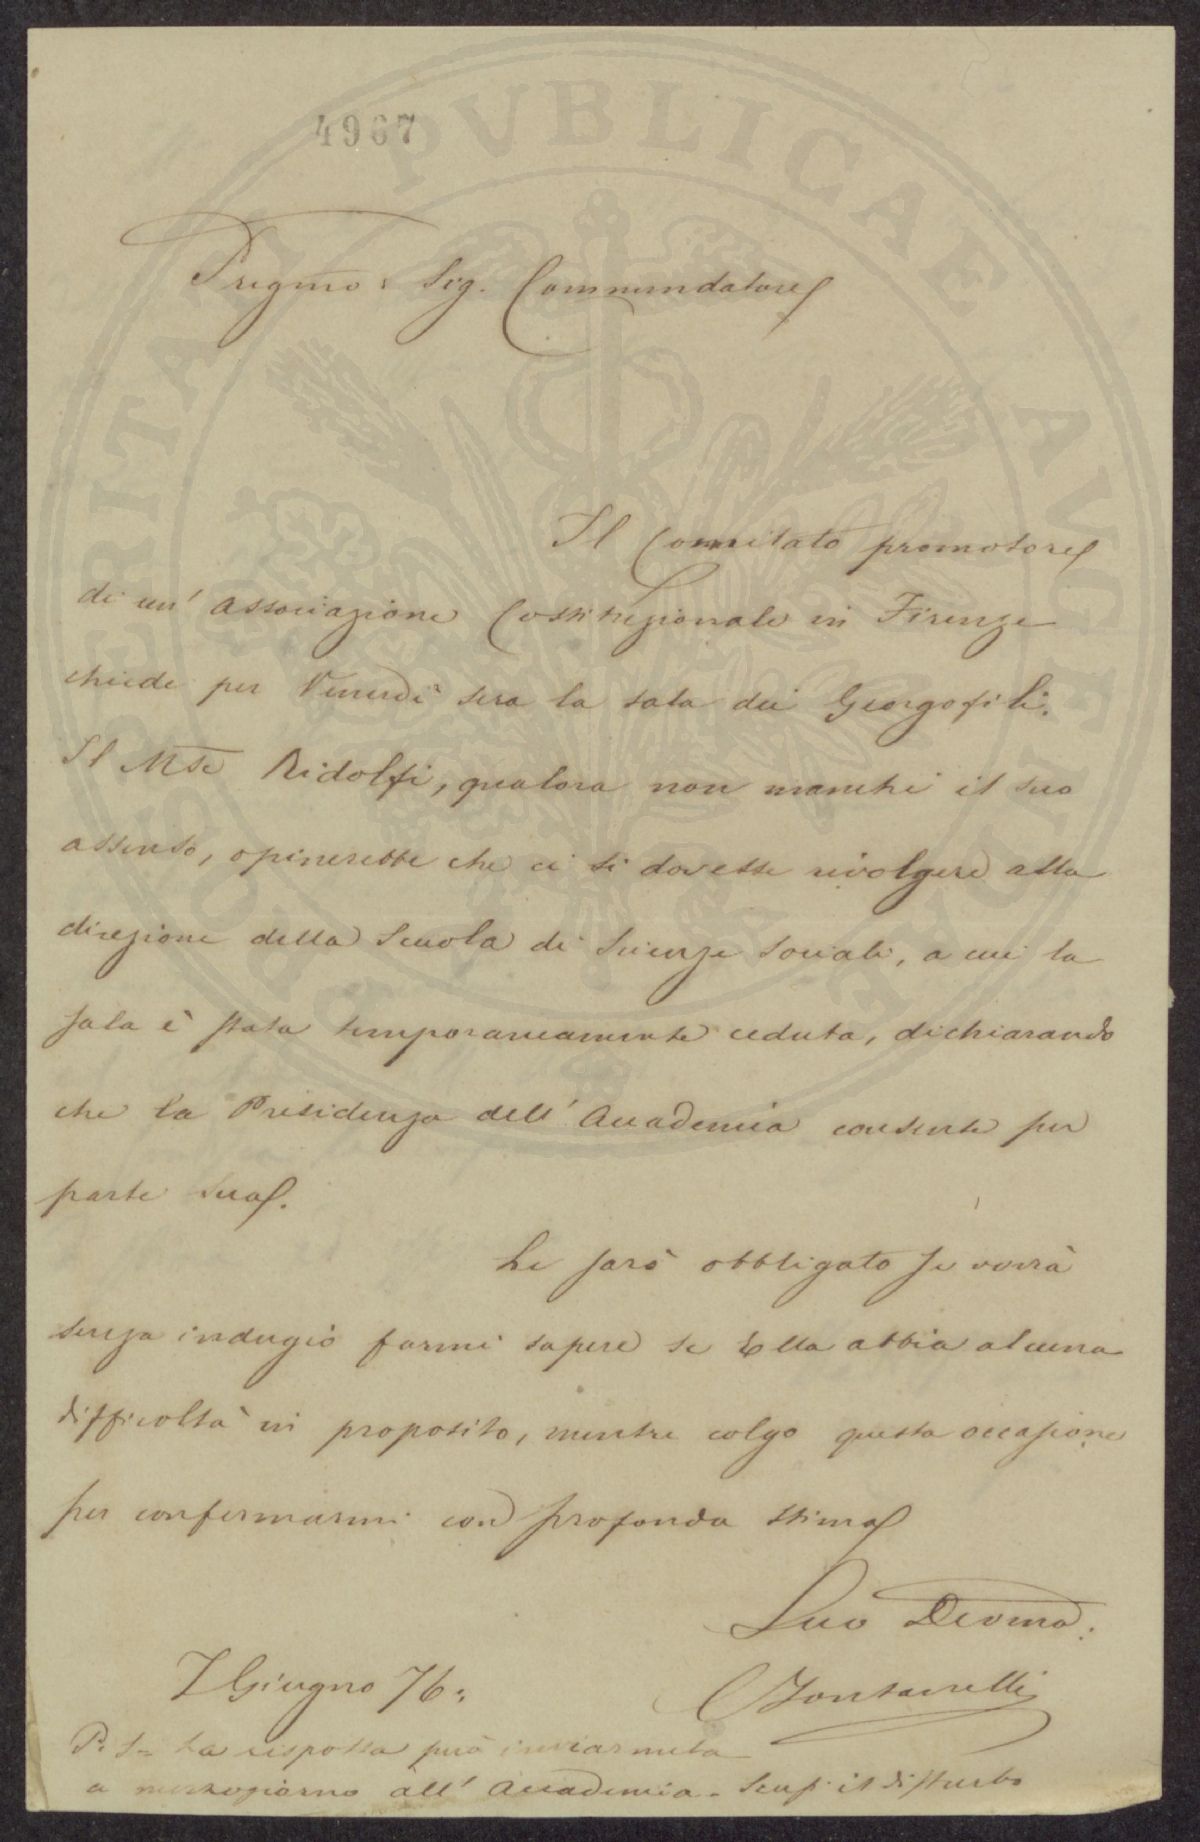 4967
Pregmo: Sig. Commendatore
Il Comitato promotore
di un' associazione Costituzionale in Firenze
chiede per Venerdì sera la sala dei Georgofili.
Il Mse Ridolfi, qualora non manchi il suo
assenso, opinerebbe che ci si dovesse rivolgere alla
direzione della Scuola di Scienze Sociali, a cui la
sala è stata temporaneamente ceduta, dichiarando
che la Presidenza dell' Accademia consente per
parte sua.
Le sarò obbligato se vorrà
senza indugio farmi sapere se Ella abbia alcuna
difficoltà in proposito, mentre colgo questa occasione
per confermarmi con profonda stima
Suo Devmo:
CFontanelli
7 Giugno 76:
P. S= La risposta può inviarmela
a mezzogiorno all' Accademia. Scusi il disturbo
PVBLICAE